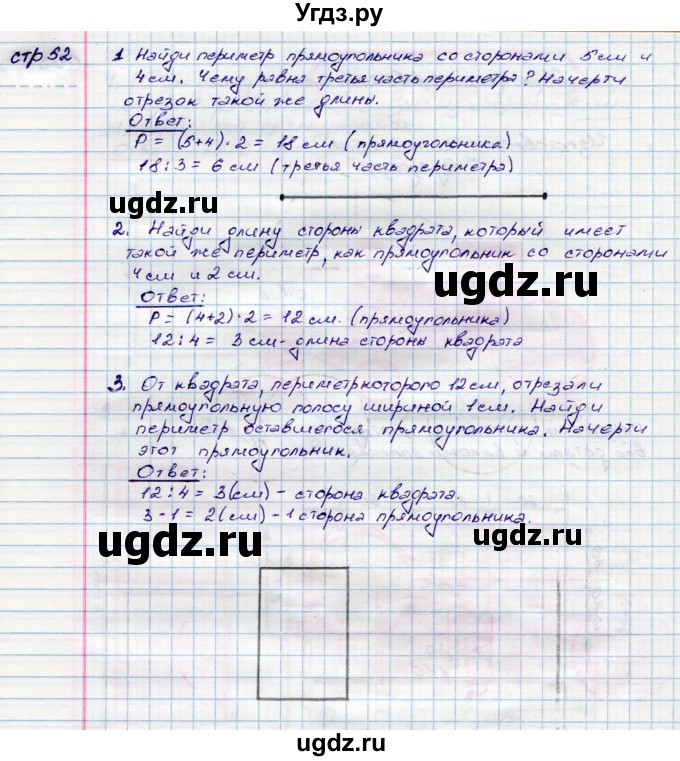 Угдз.ру
стр 52
1 Найди периметр прямоугольника со сторонами 5см и
4см. Чему равна третья часть периметра? Начерти
отрезок такой же длины.
Ответ:
P = (5+4)·2 = 18 см (прямоугольника)
18:3 = 6 см (третья часть периметра)
ugdz.ru
2. Найди длину стороны квадрата, который имеет
такой же периметр, как прямоугольник со сторонами
4см и 2 см.
ugdz.ru
Ответ:
P = (4+2)·2 = 12 см. (прямоугольника)
12:4 = 3 см - длина стороны квадрата
ugdz.ru
3. От квадрата, периметр которого 12см, отрезали
прямоугольную полосу шириной 1см. Найди
периметр оставшегося прямоугольника. Начерти
этот прямоугольник.
Ответ:
12:4 = 3(см) - сторона квадрата.
3-1 = 2(см) - 1 сторона прямоугольника.
ugdz.ru
ugdz.ru
ugdz.ru